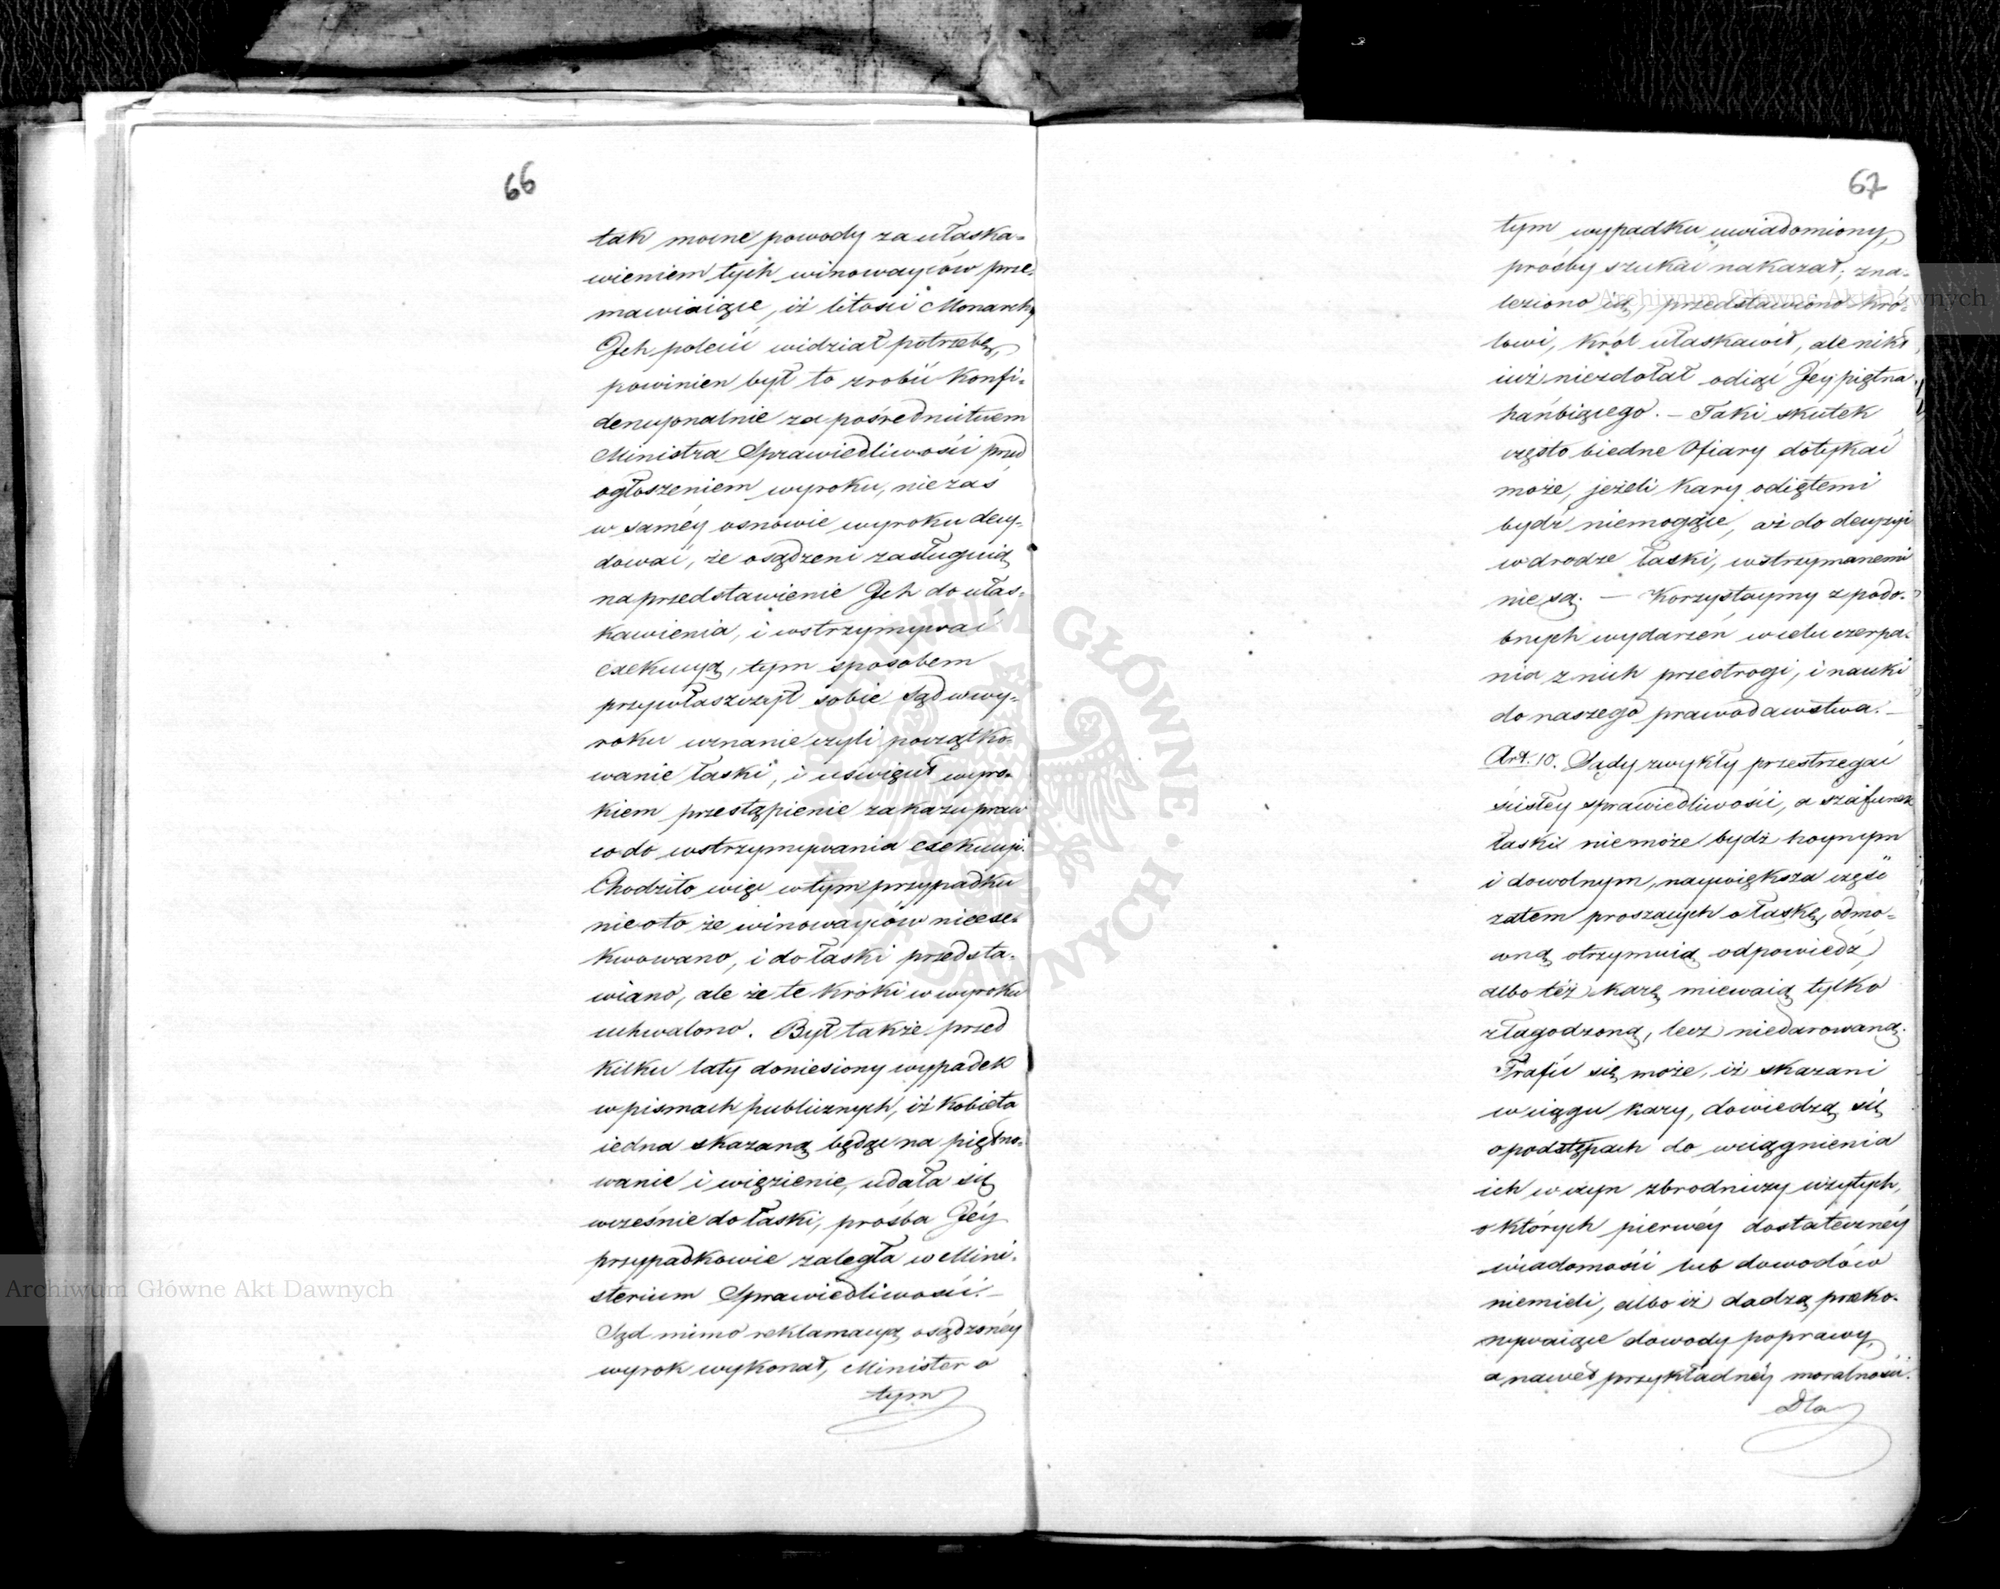 66
tak mocne powody za ułaska-
wieniem tych winowayców prze-
mawiaiące, iż litości Monarchy
Jch polecić widział potrzebę,
powinien był to zrobić konfi-
dencyonalnie za pośrednictwem
Ministra Sprawiedliwości przed
ogłoszeniem wyroku, nie zaś
w saméy osnowie wyroku decy-
dować, że osądzeni zasługuią
na przedstawienie Jch do ułas-
kawienia, i wstrzymywać
exekucyą, tym sposobem
przywłaszczył sobie Sąd w wy-
roku uznanie czyli początko-
wanie łaski, i uświęcił wyro-
kiem przestąpienie zakazu praw
co do wstrzymywania exekucyi.
Chodziło więc w tym przypadku
nie o to że winowayców nie exe-
kwowano, i do łaski przedsta-
wiano, ale że te kroki w wyroku
uchwalono. Był także przed
kilku laty doniesiony wypadek
w pismach publicznych, iż kobieta
iedna skazaną będąc na piętno-
wanie i więzienie, udała się
wcześnie do łaski, prośba Jéy
przypadkowie zaległa w Mini-
sterium Sprawiedliwości. —
Sąd mimo reklamacyą osądzonéy
wyrok wykonał, Minister o
tym
67
tym wypadku uwiadomiony,
prośby szukać nakazał; zna-
leziono ią, przedstawiono kró-
lowi, Król ułaskawił, ale nikt
iuż niezdołał odiąć Jéy piętna
hańbiącego. — Taki skutek
często biedne Ofiary dotykać
może, jeżeli kary odiętemi
bydź niemogące, aż do decyzyi
w drodze łaski, wstrzymanemi
nie są. — Korzystaymy z podo-
bnych wydarzeń wielu czerpa-
nia z nich przestrogi, i nauki
do naszego prawodawstwa. —
Art. 10. Sądy zwykły przestrzegać
ścisłey sprawiedliwości, a szafunek
łaski niemoże bydź hoynym
i dowolnym, naywiększa część
zatem proszących o łaskę, odmo-
wną otrzymuią odpowiedź,
albo téż karę miewaią tylko
złagodzoną, lecz niedarowaną.
Trafić się może, iż skazani
w ciągu kary, dowiedzą się
o podstępach do wciągnienia
ich w czyn zbrodniczy użytych,
o których pierwéy dostatecznéy
wiadomości lub dowodów
niemieli, albo iż dadzą przeko-
nywaiące dowody poprawy,
a nawet przykładnéy moralności.
Dla
Archiwum Główne Akt Dawnych
Archiwum Główne Akt Dawnych
ARCHIWUM GŁÓWNE AKT DAWNYCH